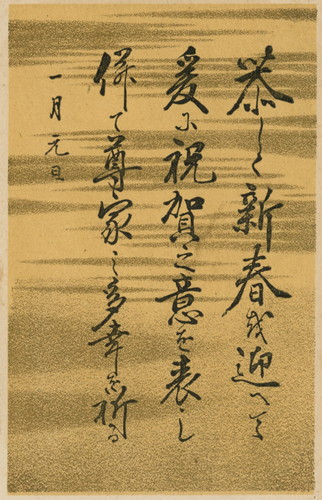 恭しく新春を迎へて
爰に祝賀之意を表し
併て尊家之多幸を祈る
一月元旦